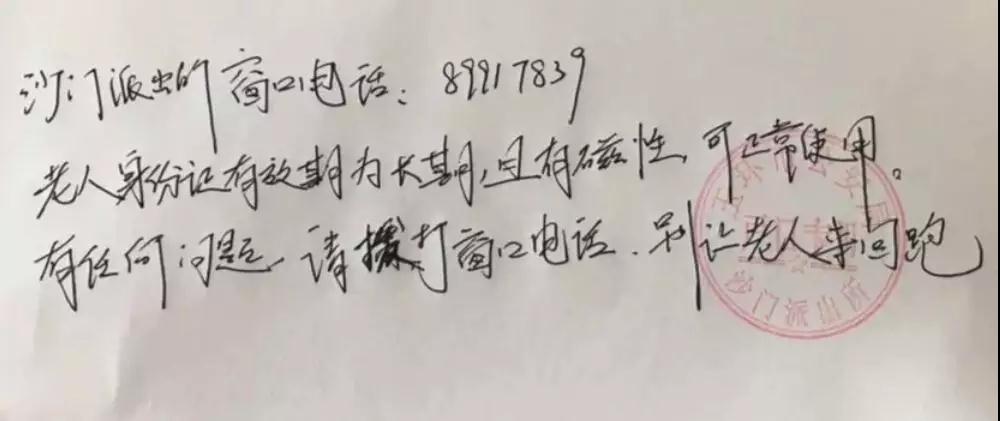 沙门派出所窗口电话：89917839
老人身份证有效期为长期，且有磁性，可正常使用。
有任何问题，请拨打窗口电话．别让老人来回跑
玉环市公安局
沙门派出所